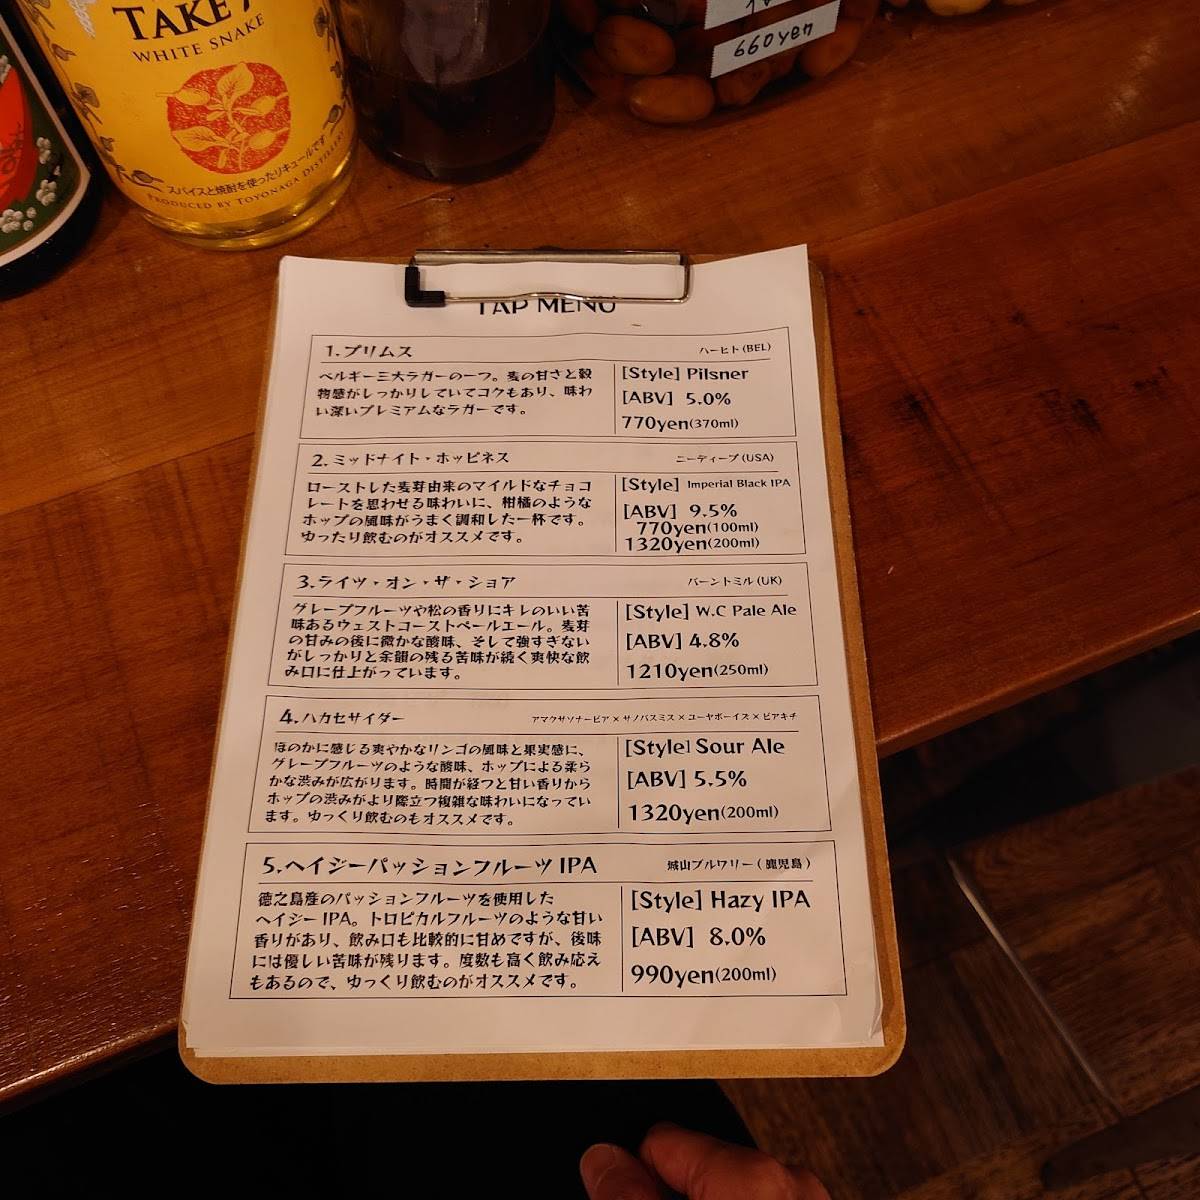 TAKE7
WHITE SNAKE
スパイスと焼酎を使ったリキュールです
PRODUCED BY TOYONAGA DISTILLERY
660yen
TAP MENU
1.プリムス
ハーヒト(BEL)
ベルギー三大ラガーの一つ。麦の甘さと穀
物感がしっかりしていてコクもあり、味わ
い深いプレミアムなラガーです。
[Style] Pilsner
[ABV] 5.0%
770yen(370ml)
2.ミッドナイト・ホッピネス
ニーディープ(USA)
ローストした麦芽由来のマイルドなチョコ
レートを思わせる味わいに、柑橘のような
ホップの風味がうまく調和した一杯です。
ゆったり飲むのがオススメです。
[Style] Imperial Black IPA
[ABV] 9.5%
770yen(100ml)
1320yen(200ml)
3.ライツ・オン・ザ・ショア
バーントミル(UK)
グレープフルーツや松の香りにキレのいい苦
味あるウェストコーストペールエール。麦芽
の甘みの後に微かな酸味、そして強すぎない
がしっかりと余韻の残る苦味が続く爽快な飲
み口に仕上がっています。
[Style] W.C Pale Ale
[ABV] 4.8%
1210yen(250ml)
4.ハカセサイダー
アマクサソナービア×サノバスミス×ユーヤボーイス×ビアキチ
ほのかに感じる爽やかなリンゴの風味と果実感に、
グレープフルーツのような酸味、ホップによる柔ら
かな渋みが広がります。時間が経つと甘い香りから
ホップの渋みがより際立つ複雑な味わいになってい
ます。ゆっくり飲むのもオススメです。
[Style] Sour Ale
[ABV] 5.5%
1320yen(200ml)
5.ヘイジーパッションフルーツIPA
城山ブルワリー(鹿児島)
徳之島産のパッションフルーツを使用した
ヘイジーIPA。トロピカルフルーツのような甘い
香りがあり、飲み口も比較的に甘めですが、後味
には優しい苦味が残ります。度数も高く飲み応え
もあるので、ゆっくり飲むのがオススメです。
[Style] Hazy IPA
[ABV] 8.0%
990yen(200ml)